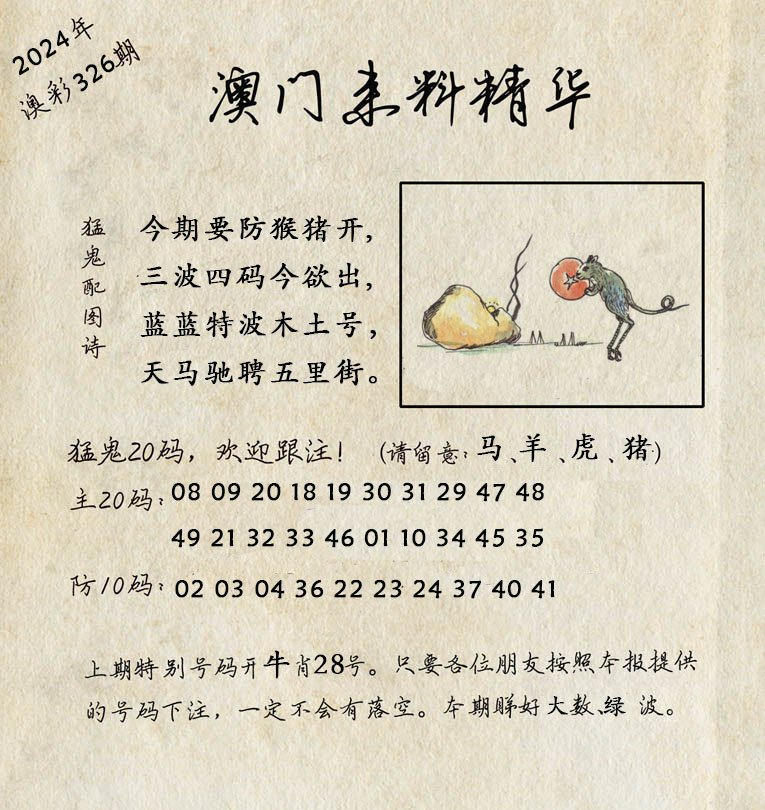 2024年
澳彩326期
澳门来料精华
猛鬼配图诗
今期要防猴猪开,
三波四码今欲出,
蓝蓝特波木土号,
天马驰聘五里街。
猛鬼20码，欢迎跟注！(请留意:马、羊、虎、猪)
主20码: 08 09 20 18 19 30 31 29 47 48
49 21 32 33 46 01 10 34 45 35
防10码: 02 03 04 36 22 23 24 37 40 41
上期特别号码开牛肖28号。只要各位朋友按照本报提供
的号码下注，一定不会有落空。本期睇好大数、绿 波。